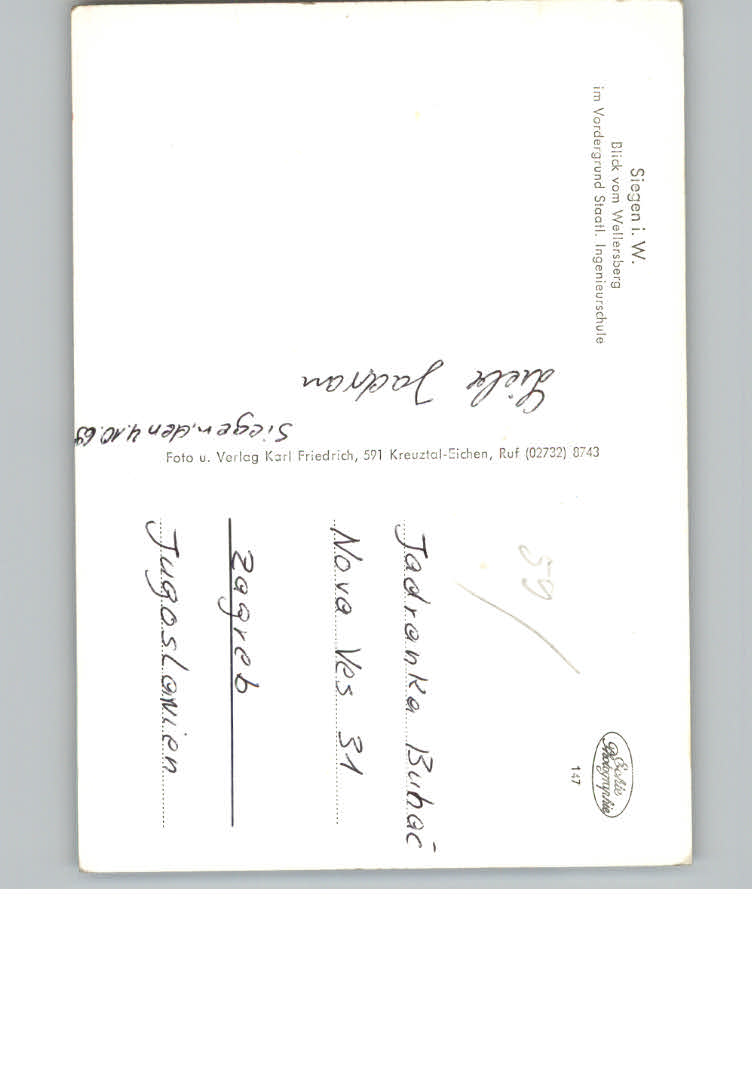 Siegen i. W.
Blick vom Wellersberg
im Vordergrund Staatl. Ingenieurschule
Siegen, den 4.10.69
Liebe Jadran
Foto u. Verlag Karl Friedrich, 591 Kreuztal-Eichen, Ruf (02732) 8743
Echte
Photographie
147
59
Jadranka Buhač
Nova Ves 31
Zagreb
Jugoslawien